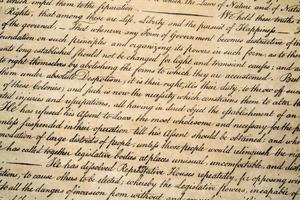 which the Laws of Nature and of
impel them to the separation. We hold these truths
Rights, that among these are Life, Liberty and the pursuit of Happiness
of the governed. That whenever any Form of Government becomes destructive of
foundation on such principles and organizing its powers in such form, as to
long established should not be changed for light and transient causes; and
to right themselves by abolishing the forms to which they are accustomed. But
them under absolute Despotism, it is their right, it is their duty, to throw off
of these Colonies; and such is now the necessity which constrains them to alter
injuries and usurpations, all having in direct object the establishment of an
He has refused his Assent to Laws, the most wholesome and necessary for the
unless suspended in their operation till his Assent should be obtained; and
of large districts of people, unless those people would relinquish the
has called together legislative bodies at places unusual, uncomfortable, and
He has dissolved Representative Houses repeatedly, for opposing
to cause others to be elected; whereby the Legislative powers, incapable of
all the dangers of invasion from without, and